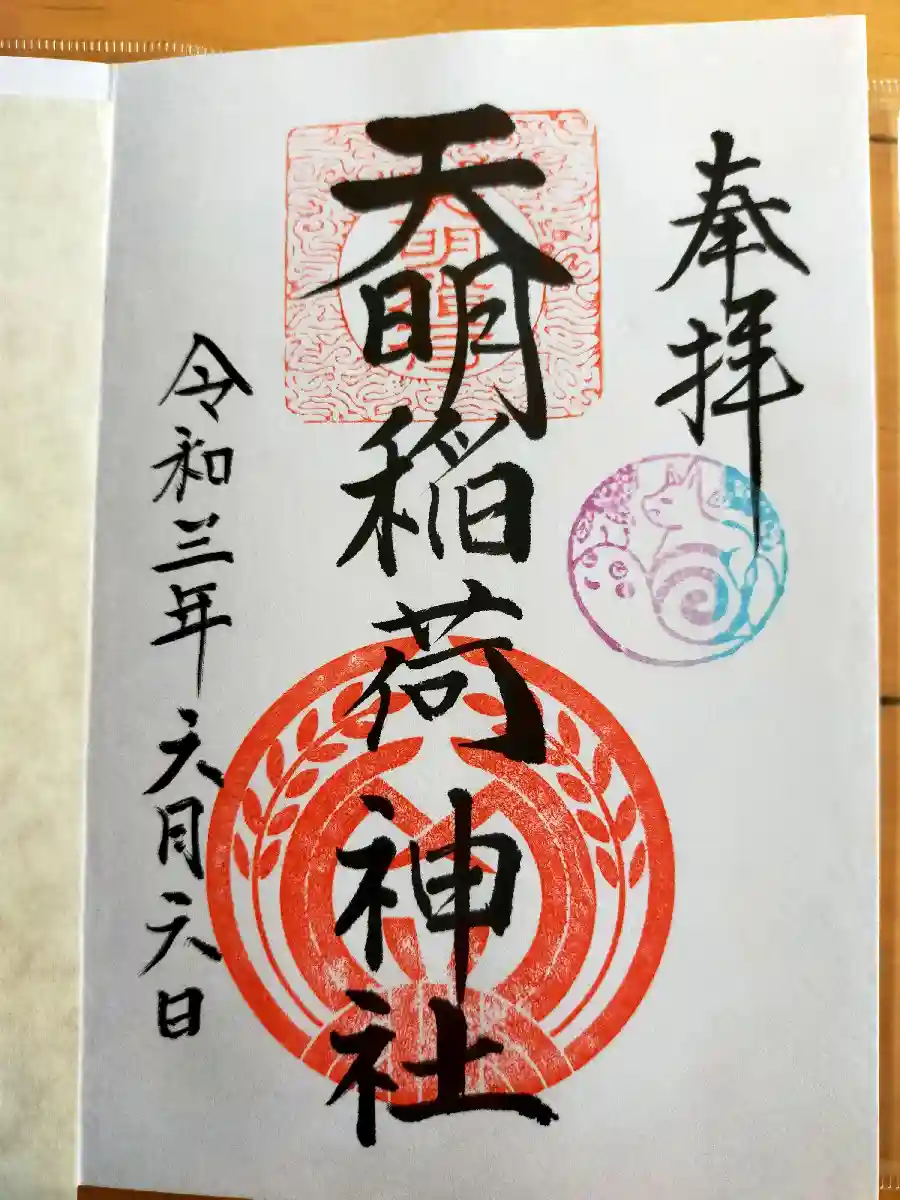 奉拝
天明稲荷神社
令和三年六月六日